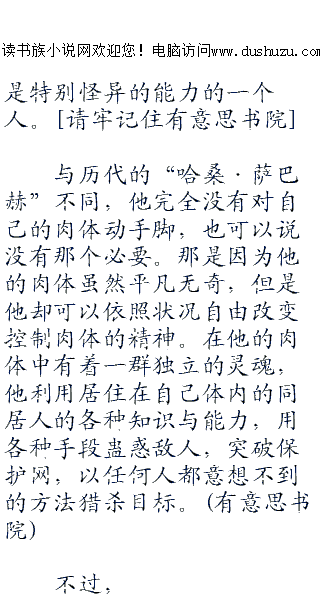 读书族小说网欢迎您！电脑访问www.dushuzu.com
是特别怪异的能力的一个
人。[请牢记住有意思书院]
与历代的“哈桑·萨巴
赫”不同，他完全没有对自
己的肉体动手脚，也可以说
没有那个必要。那是因为他
的肉体虽然平凡无奇，但是
他却可以依照状况自由改变
控制肉体的精神。在他的肉
体中有着一群独立的灵魂，
他利用居住在自己体内的同
居人的各种知识与能力，用
各种手段蛊惑敌人，突破保
护网，以任何人都意想不到
的方法猎杀目标。(有意思书
院)
不过，